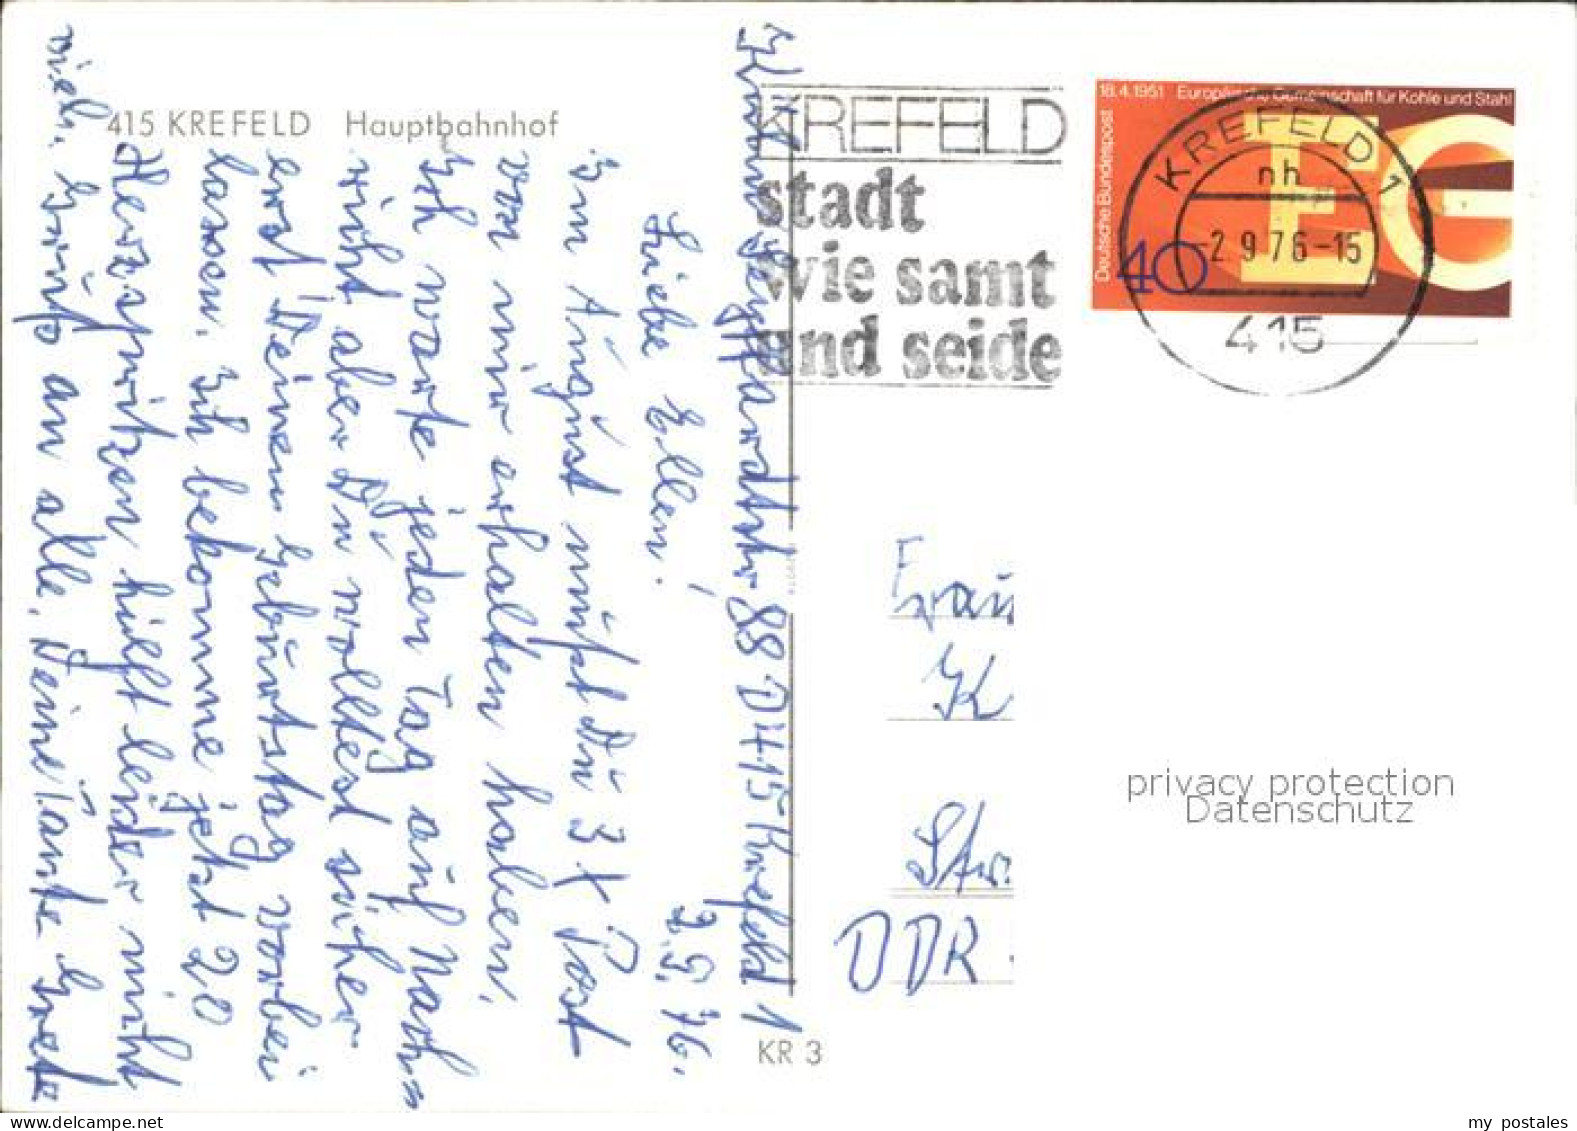 415 KREFELD Hauptbahnhof
KREFELD
stadt
wie samt
und seide
18.4.1951 Europäische Gemeinschaft für Kohle und Stahl
Deutsche Bundespost
40
EG
KREFELD 1
nh
-2.9.76-15
415
88 D415 Krefeld 1
2.9.76.
Liebe Ellen!
Im August mußt Du 3 x Post
von mir erhalten haben.
Ich warte jeden Tag auf Nachr.
nicht aber Du wolltest sicher
erst Deinen Geburtstag vorbei
lassen. Ich bekomme jetzt 20
Herzspritzen hilft leider nicht
viel. Gruß an alle. Deine Tante Grete
Frau
K
Str.
DDR
KR 3
privacy protection
Datenschutz
my postales
www.delcampe.net